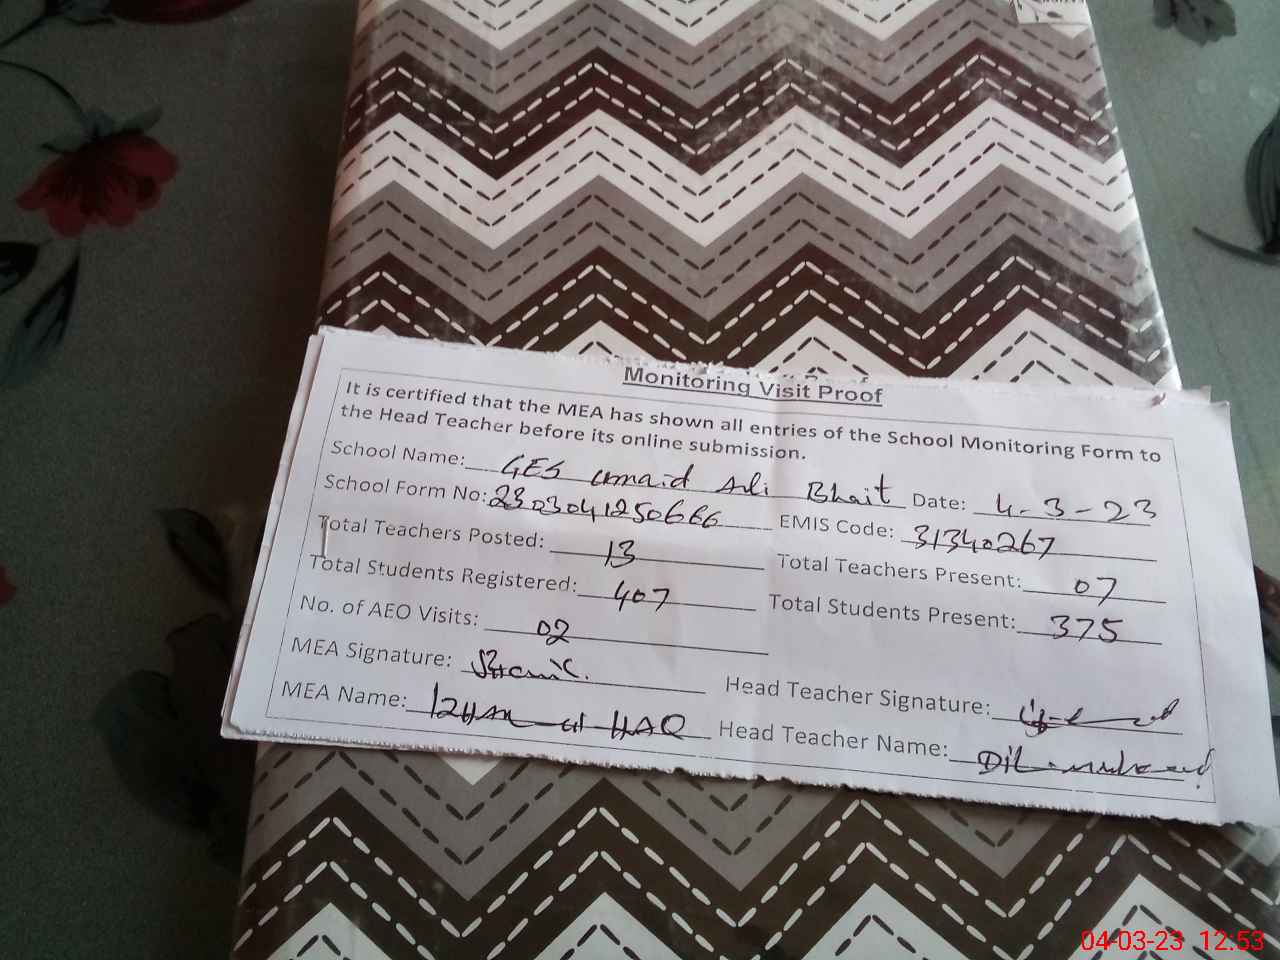 Monitoring Visit Proof
It is certified that the MEA has shown all entries of the School Monitoring Form to
the Head Teacher before its online submission.
School Name: GES Umaid Ali Bhait Date: 4-3-23
School Form No: 2303041250666 EMIS Code: 31340267
Total Teachers Posted: 13 Total Teachers Present: 07
Total Students Registered: 407 Total Students Present: 375
No. of AEO Visits: 02
MEA Signature: Head Teacher Signature:
MEA Name: Izhar ul HAQ Head Teacher Name:
04-03-23 12:53